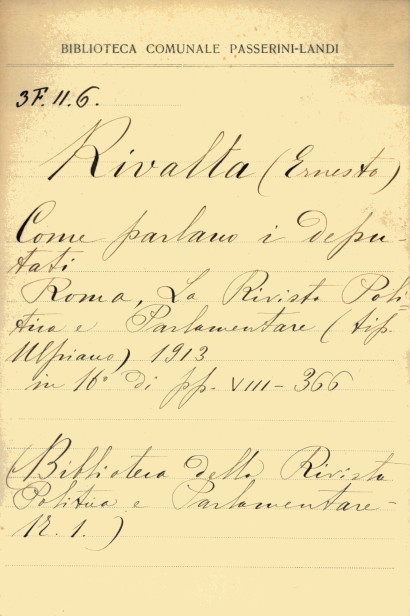 BIBLIOTECA COMUNALE PASSERINI-LANDI
3F.11.6.
Rivalta (Ernesto)
Come parlano i depu-
tati
Roma, La Rivista Poli-
tica e Parlamentare (tip.
Ulpiano) 1913
in 16° di pp. VIII-366
(Biblioteca della Rivista
Politica e Parlamentare-
N. 1.)